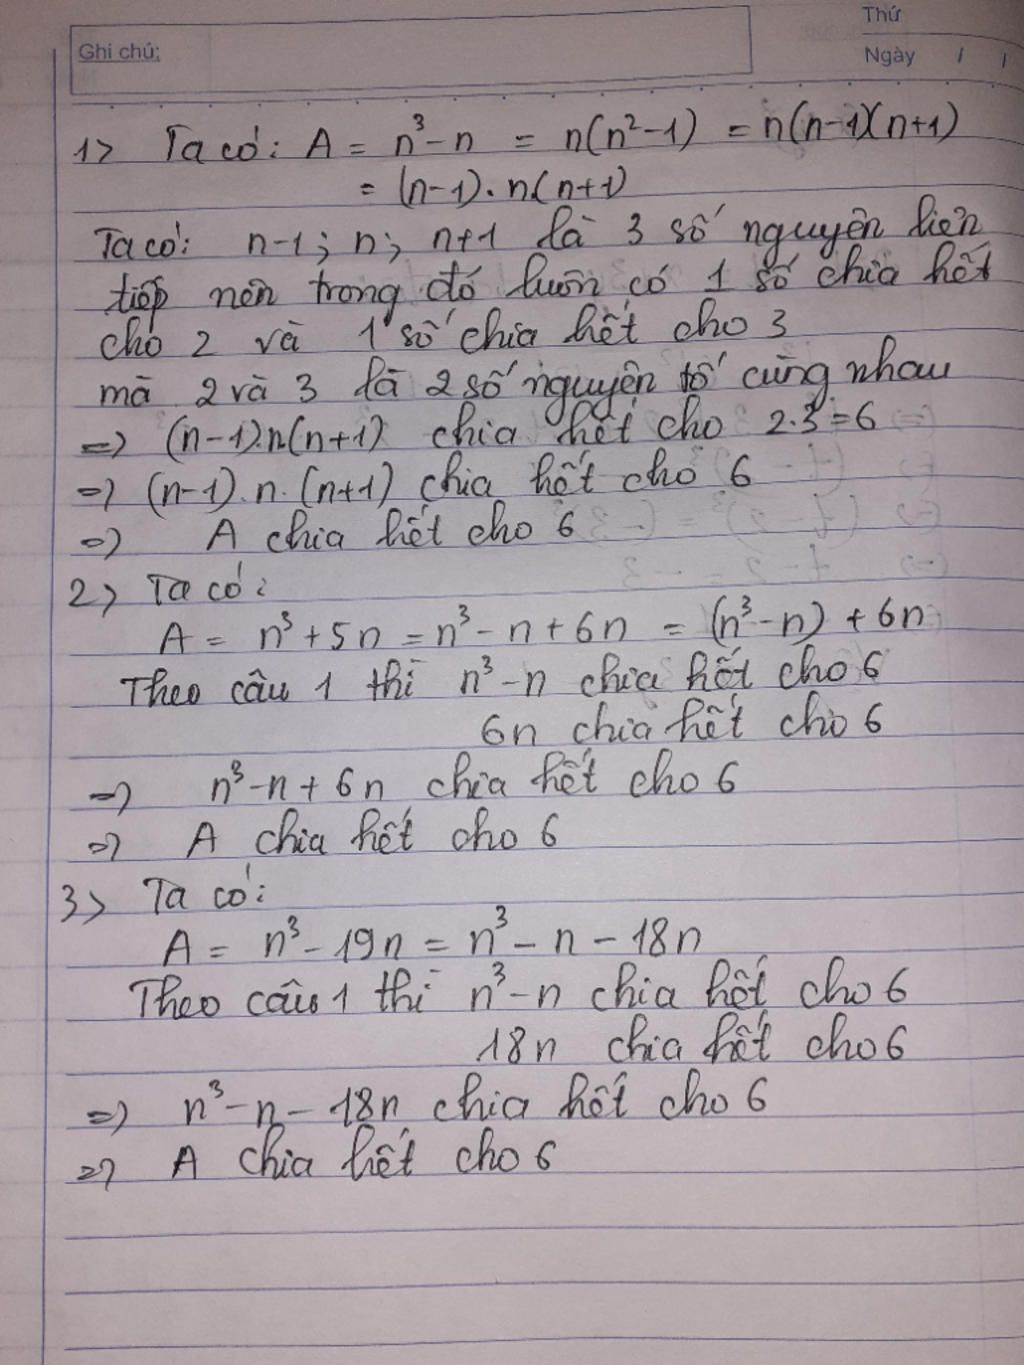 Thứ
Ghi chú:
Ngày / /
1> Ta có: A = n³ - n = n(n²-1) = n(n-1)(n+1)
= (n-1).n(n+1)
Ta có: n-1; n; n+1 là 3 số nguyên liên
tiếp nên trong đó luôn có 1 số chia hết
cho 2 và 1 số chia hết cho 3
mà 2 và 3 là 2 số nguyên tố cùng nhau
=> (n-1).n(n+1) chia hết cho 2.3=6
=> (n-1).n.(n+1) chia hết cho 6
=> A chia hết cho 6
2> Ta có:
A = n³ + 5n = n³ - n + 6n = (n³-n) + 6n
Theo câu 1 thì n³-n chia hết cho 6
6n chia hết cho 6
=> n³-n + 6n chia hết cho 6
=> A chia hết cho 6
3> Ta có:
A = n³ - 19n = n³ - n - 18n
Theo câu 1 thì n³-n chia hết cho 6
18n chia hết cho 6
=> n³-n - 18n chia hết cho 6
=> A chia hết cho 6